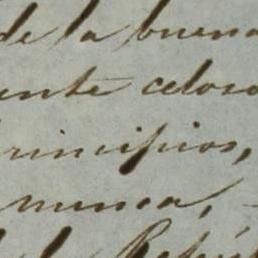 de la buena
ente celoso
rincipios,
nunca,
de la Repú